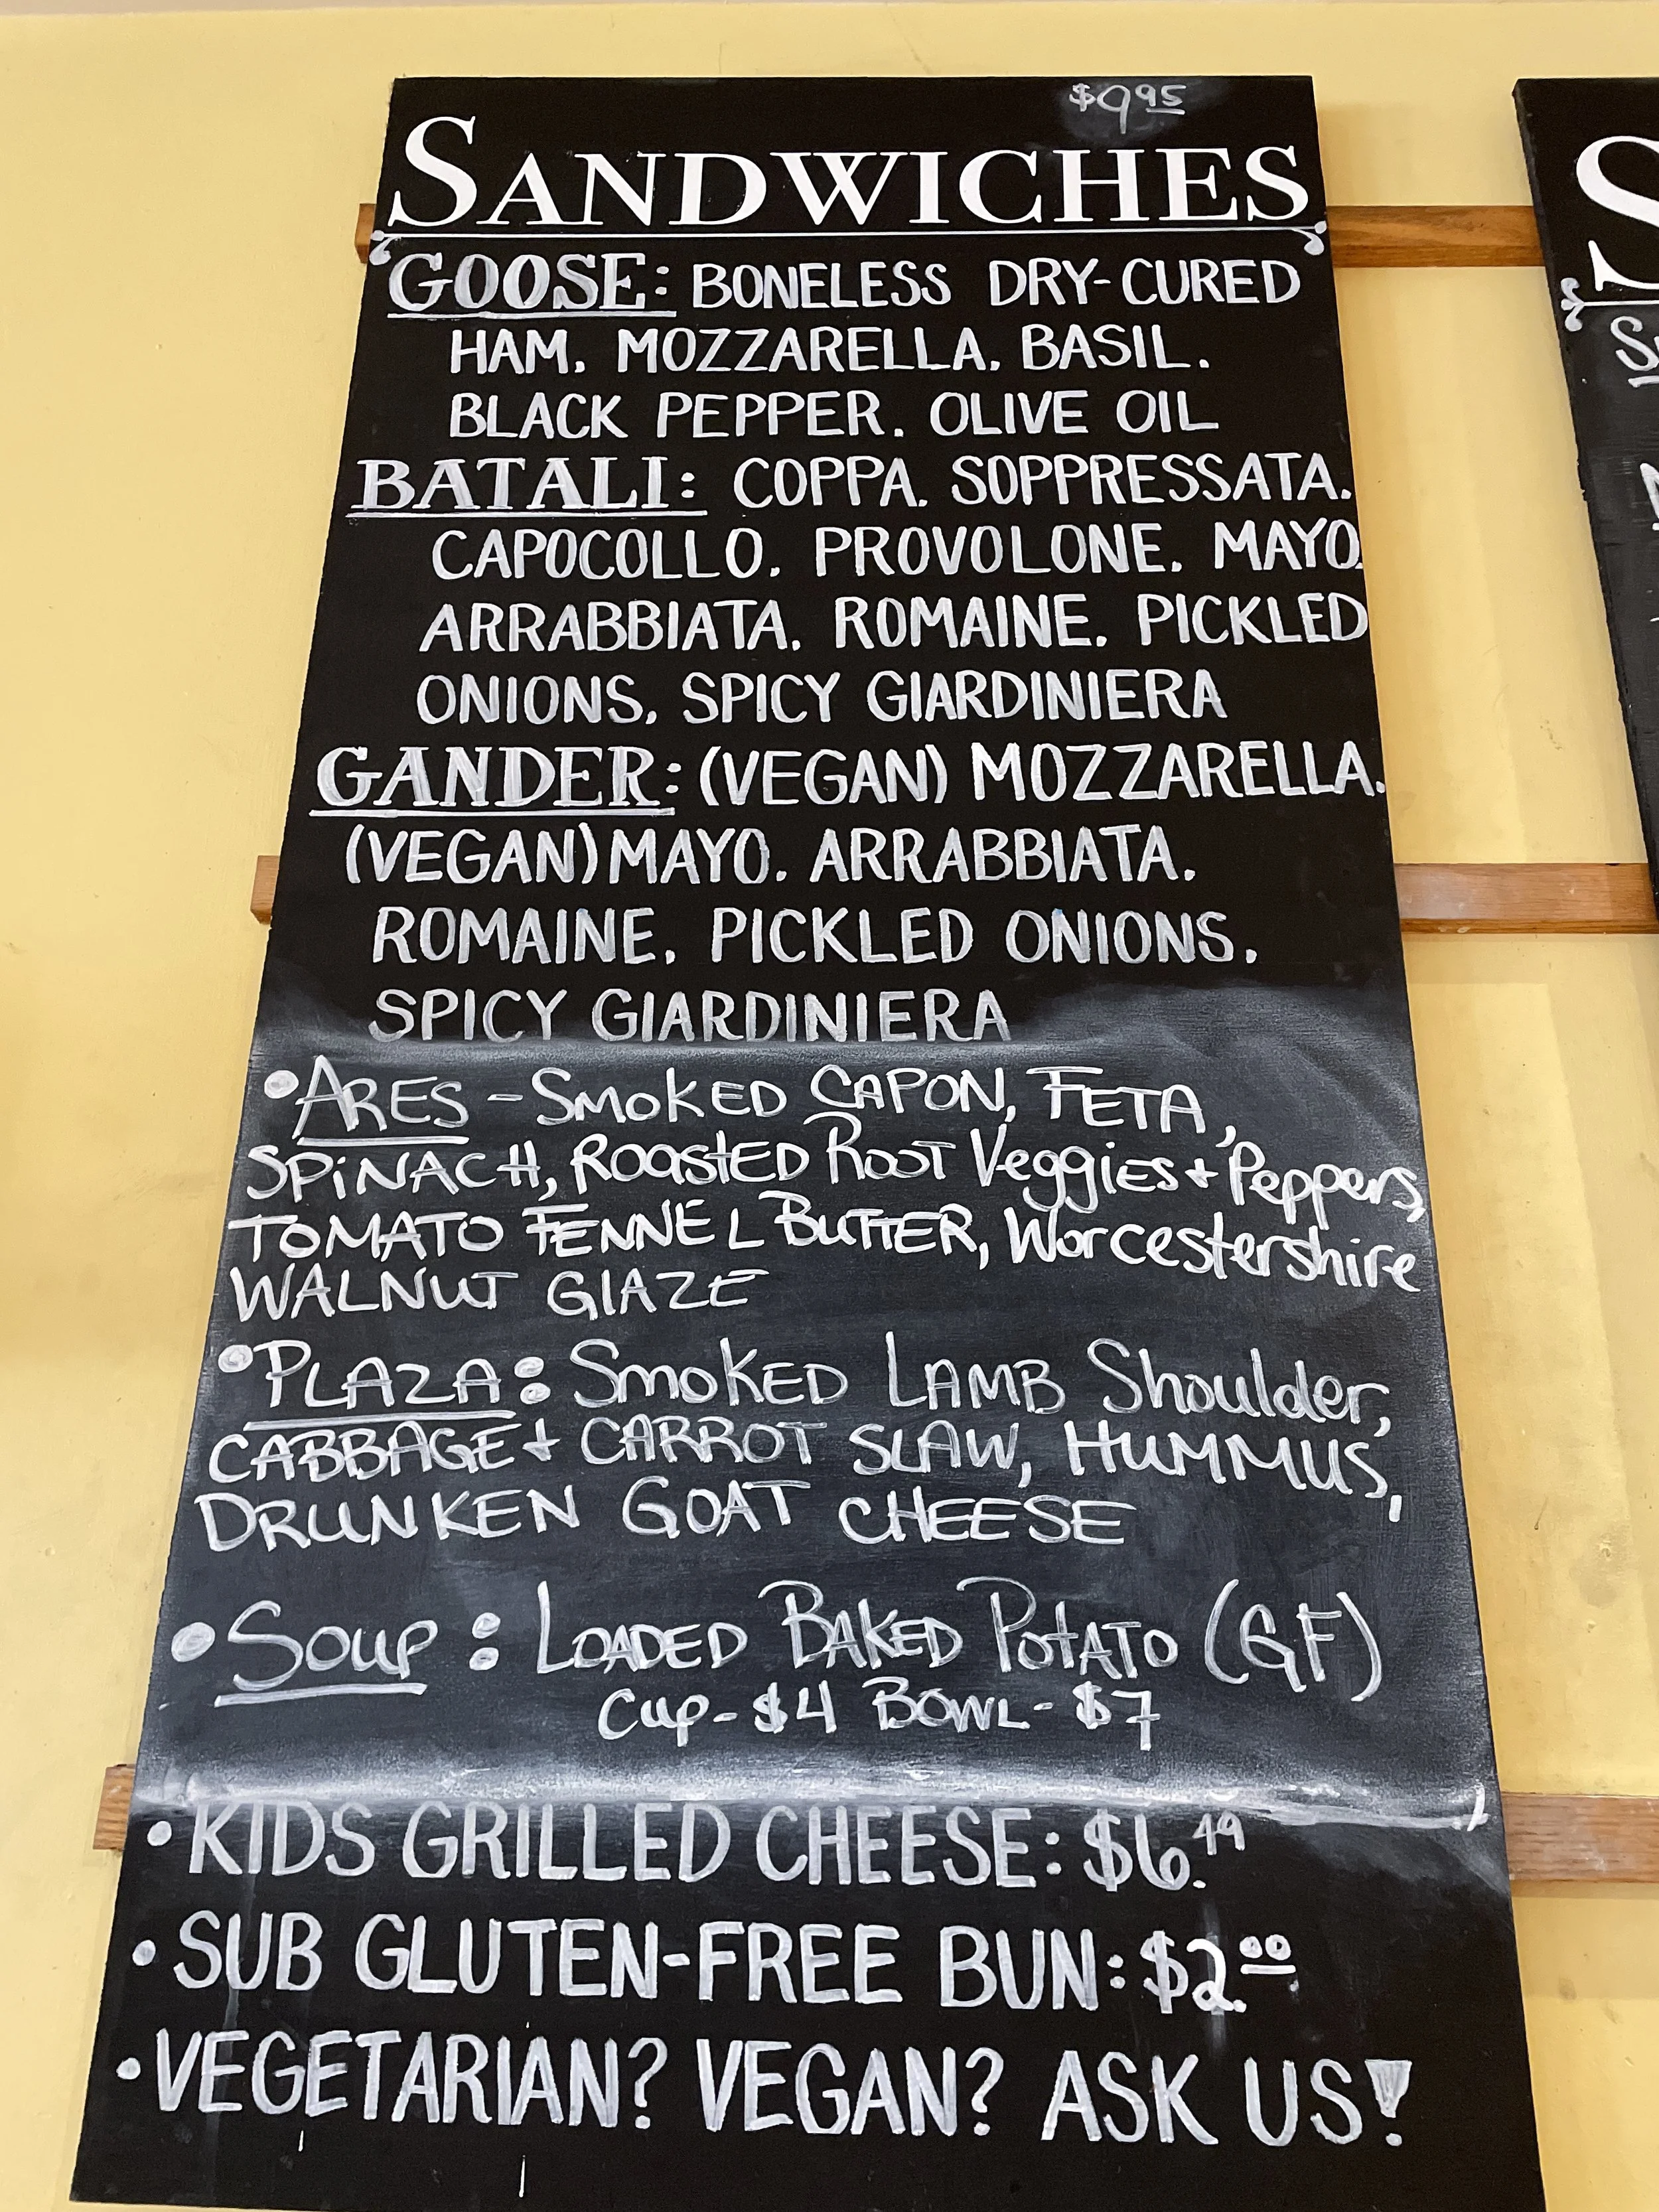 $9.95
SANDWICHES
GOOSE: BONELESS DRY-CURED
HAM, MOZZARELLA, BASIL,
BLACK PEPPER, OLIVE OIL
BATALI: COPPA, SOPPRESSATA,
CAPOCOLLO, PROVOLONE, MAYO,
ARRABBIATA, ROMAINE, PICKLED
ONIONS, SPICY GIARDINIERA
GANDER: (VEGAN) MOZZARELLA,
(VEGAN) MAYO, ARRABBIATA,
ROMAINE, PICKLED ONIONS,
SPICY GIARDINIERA
• ARES - SMOKED CAPON, FETA,
SPiNACH, ROASTED ROOT Veggies + Peppers,
TOMATO FENNEL BUTTER, Worcestershire
WALNUT GlAZE
• PLAZA: SMOKED LAMB Shoulder,
CABBAGE + CARROT SLAW, HUMMUS,
DRUNKEN GOAT CHEESE
• SOUP: LOADED BAKED POTATO (GF)
Cup - $4 BOWL - $7
• KIDS GRILLED CHEESE: $6.49
• SUB GLUTEN-FREE BUN: $2.00
• VEGETARIAN? VEGAN? ASK US!